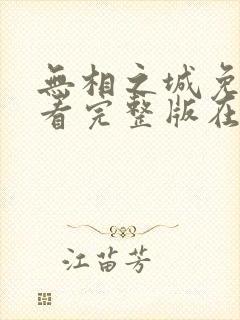 無相之城免
看完整版在
江苗芳